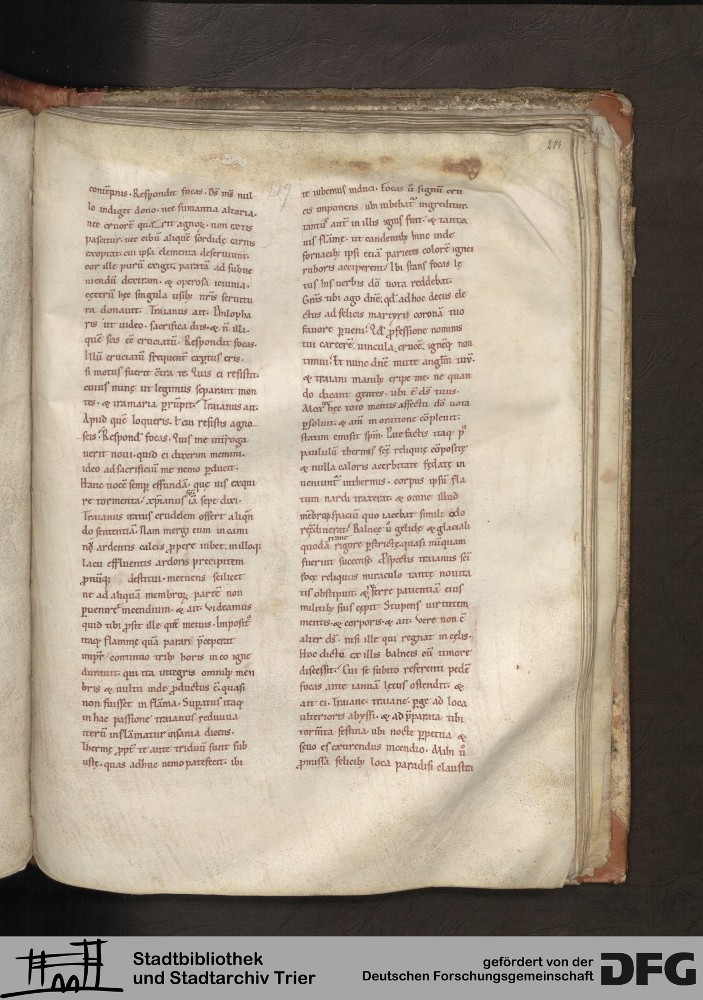 contēpnis. Respondit focas. D̄s m̄s nul
lo indiget dono. nec fumantia altaria.
nec cruorē
pascitur. nec cibū aliquē sordidę carnis
exoptat. cui ipsa elementa deseruiunt.
cor ille purū exigit. paratā ad subue
niendū dextram. & operosa ieiunia.
cęterū hęc singula usib; nr̄is seruitu
ra donauit. Traianus ait. Philopha
ris ut uideo. sacrifica diis. & ñ illi.
quē scis eē cruciatū. Respondit focas.
Illū cruciatū
si motus fuerit c̄tra te. Quis ei resistit.
cuius nunc ut legimus separant mon
tes. & Traianus ait.
Apud quē loqueris. t̄ an resistis agno
scis? Respond̄ focas. Quis me
uerit noui. quid ei dixerim memini.
ideo ad sacrificiū me nemo ꝑducit.
Hanc uocē semꝑ effundā. que uis exqui
re tormenta. xp̄ianus iā sepe dixi.
Traianus iratus crudelem offert aliqn̄
do sententiā. Nam mergi eum in cami
nū ardentis calcis ꝓpere iubet. nulloq;
lacu effluentis ardoris precipitem
destitui. metuens scilicet
ne ad aliquā membroꝝ partē non
ꝑueniret incendium. & ait. Videamus
quid tibi ꝓsit ille quē metuis. Imposit᷒
itaq; flammę quā parari p̄ceperat
impr̄ continuo trib; horis in eo igne
durauit. qui ita integris omnib; mem
bris & uultu inde ꝓductus ē. quasi
non fuisset in flāma. Suꝑatus itaq;
in hac passione traianus rediuiua
iterū inflāmatur insania dicens.
Thermę ꝓpt̄ te ante triduū sunt sub
ustę. quas adhuc nemo patefecit. ibi
te iubemus induci. Focas ū signū cru
cis imponens. ubi iubebat᷒ ingreditur.
tantus aut̄ in illis ignis fuit. & tanta
uis flāmę. ut candenub; hinc inde
fornacib; ipsi etiā parietes colorē ignei
ruboris acciperent. Ibi stans focas lę
tus his uerbis dō uota reddebat.
Gr̄as tibi ago dn̄e. qd̄ ad hoc decus ele
ctus ad felicis martyrii coronā tuo
fauore ꝑueni. Qd̄ ꝓfessione nominis
tui carcerē. uincula. crucē. ignēq; non
timui. Et nunc dn̄e mitte angl̄m tuū.
& traiani manib; eripe me. ne quan
do dicant gentes. ubi ē d̄s tuus.
hęc toto mentis affectu dō uota
ꝑsoluit. & am̄ in oratione cōpleuit.
statim emisit sp̄m. Patefactis itaq; p᷒
paululū thermis. scę̄ reliquię cōpositę
& nulla caloris acerbitate fędatę in
ueniunt᷒ inthermis. corpus ipsū fla
tum nardi traxerat. & omne illud
spaciū quo iacebat simili odo
Balnee ū gelidę & glaciali
quodā rigore ꝑstrictę. quasi nūquam
fuerint succensę. Ꝑspectis traianus sc̄i
focę reliquiis miraculo tantę nouita
tis obstipuit. & ferre patientiā eius
multib; suis cępit. Stupens uirtutem
mentis. & corporis. & ait. Vere non ē
alter d̄s. nisi ille qui regnat in cęlis.
Hoc dicto ex illis balneis cū timore
discessit. Cui se subito referenti pedē
focas ante ianuā lętus ostendit. &
ait ei. Traiane. traiane. ꝑge ad loca
ulterioris abyssi. & ad p̄parata tibi
torm̄ta festina. ubi nocte ꝑpetua &
seuo es exurendus incendio. Mihi ū
ꝓmissa felicib; loca paradisi claustra
Stadtbibliothek
und Stadtarchiv Trier
gefördert von der
Deutschen Forschungsgemeinschaft
DFG